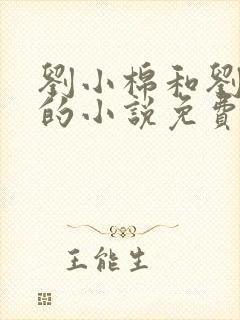 劉小棉和劉
的小說免費
王能生